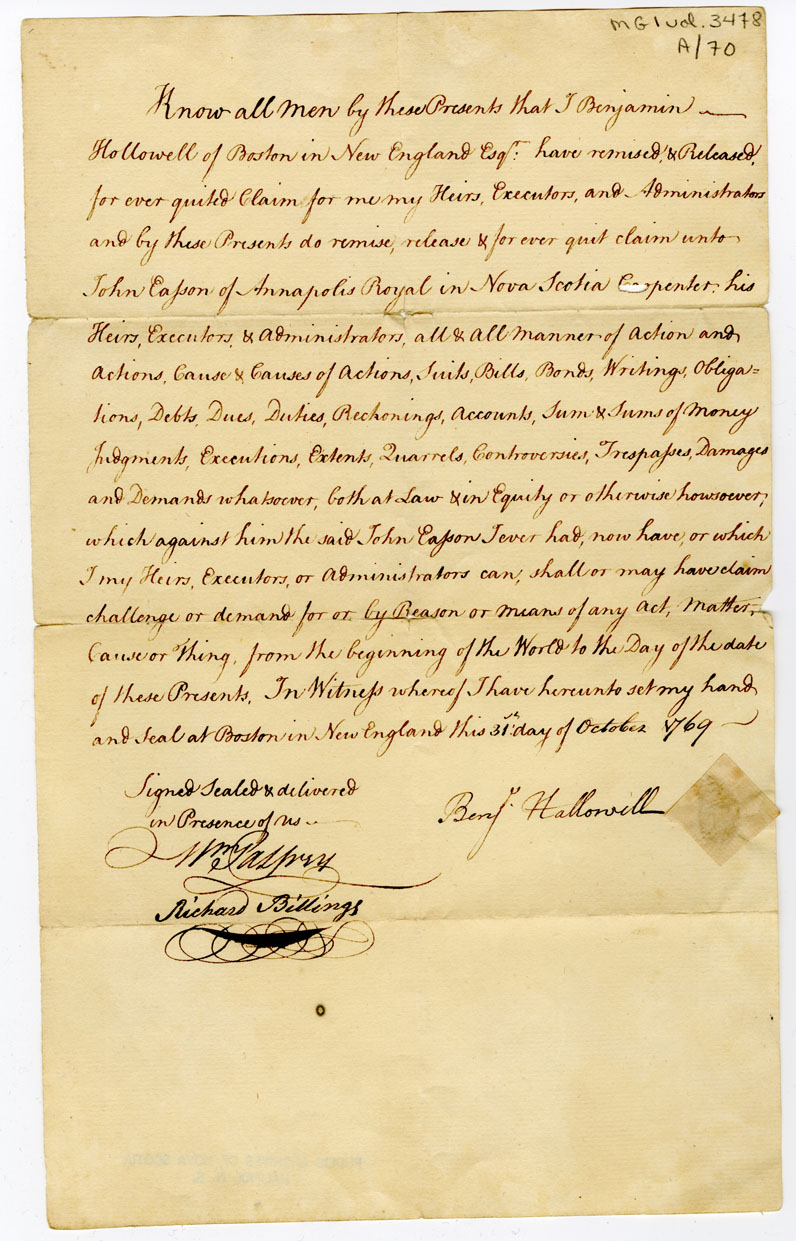 MG1 vol. 3478
A/70
Know all Men by these Presents that I Benjamin
Hollowell of Boston in New England Esqr. have remised, & Released,
for ever quited Claim for me my Heirs, Executors, and Administrators
and by these Presents do remise, release & for ever quit claim unto
John Eaſson of Annapolis Royal in Nova Scotia Carpenter, his
Heirs, Executors, & Administrators, all & All manner of Action and
Actions, Cause & Causes of Actions, Suits, Bills, Bonds, Writings, Obliga=
tions, Debts, Dues, Duties, Reckonings, Accounts, Sum & Sums of Money
Judgments, Executions, Extents, Quarrels, Controversies, Treſpaſses, Damages
and Demands whatsoever, both at Law & in Equity or otherwise howsoever,
which against him the said John Eaſson I ever had, now have, or which
I my Heirs, Executors, or Administrators can, shall or may have claim
challenge or demand for or by Reason or means of any Act, Matter,
Cause or Thing, from the beginning of the World to the Day of the date
of these Presents. In Witneſs whereof I have hereunto set my hand
and Seal at Boston in New England this 31st day of October 1769
Signed Sealed & delivered
in Presence of us
Benj. Hallowell
Wm Palfrey
Richard Billings
PUBLIC ARCHIVES OF NOVA SCOTIA
HALIFAX, N. S.